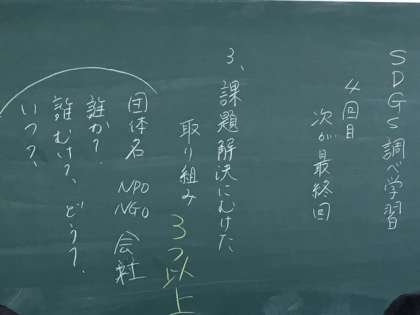 SDGs調べ学習
4回目
次が最終回
3、課題解決にむけた
取り組み 3つ以上
団体名 NPO NGO 会社
誰が?
誰むけ?、どう?、
いつ?、